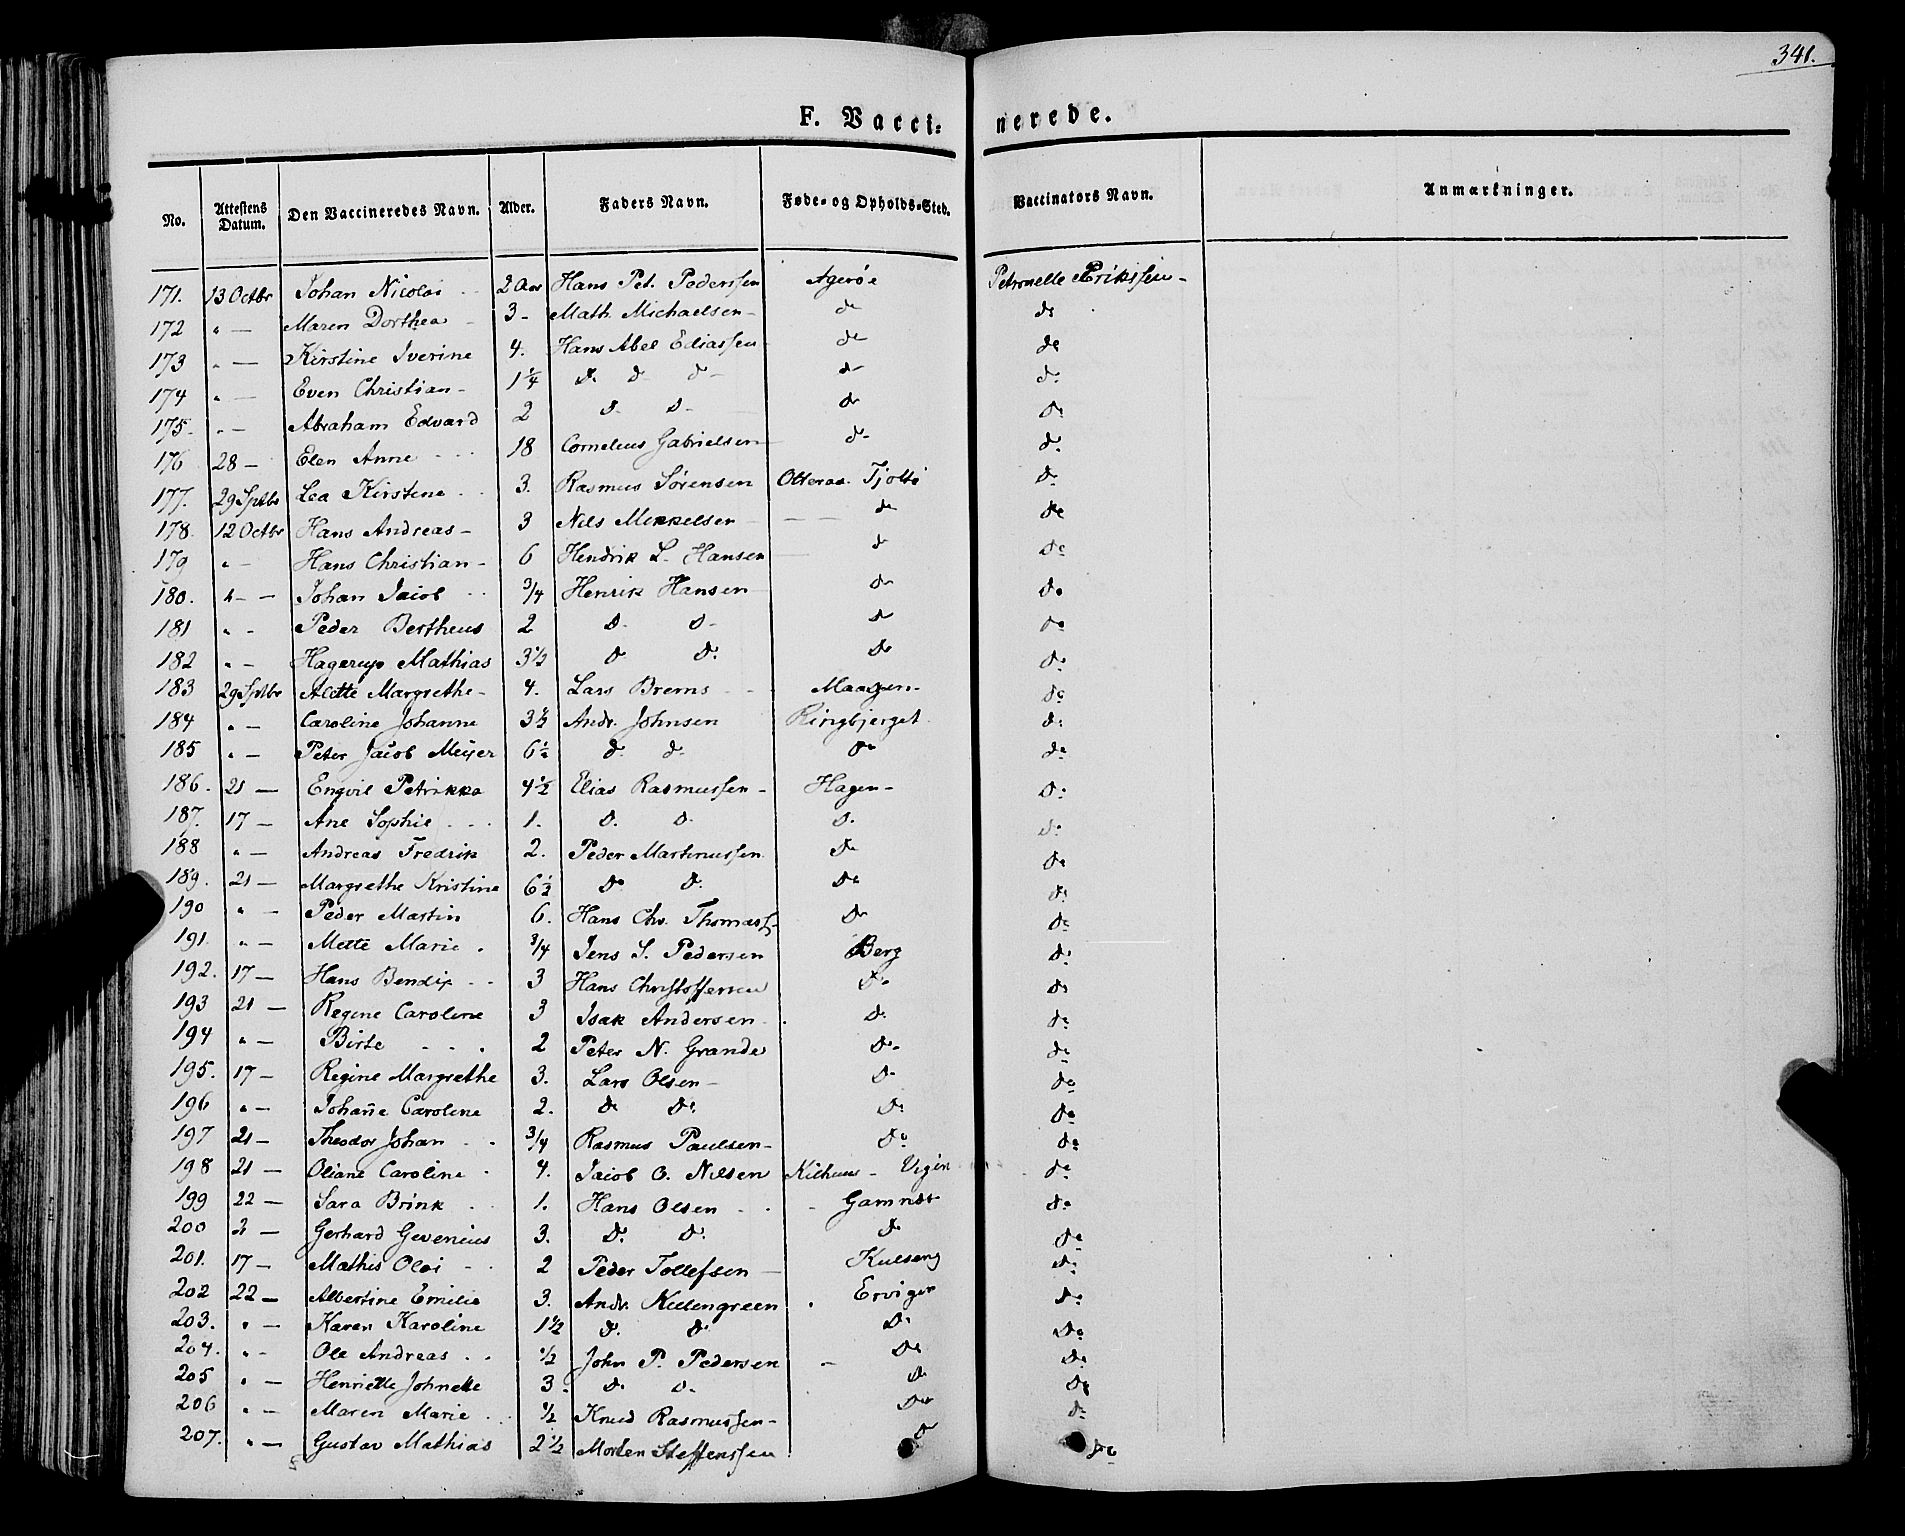 341.
F. Vacci- nerede.
No. Attestens Datum. Den Vaccineredes Navn. Alder. Faders Navn. Føde- og Opholds-Sted. Vaccinators Navn. Anmærkninger.
171. 13 Octbr Johan Nicolai 2 Aar Hans Pet. Pederssen Agerøe Petronelle Erikssen
172 " — Maren Dorthea 3 - Math. Michaelsen - do do
173 " — Kirstine Iverine 4. Hans Abel Eliassen do do
174 " — Even Christian - 1 1/4 do do do do do
175. " — Abraham Edvard 2 do do do do
176 28 — Elen Anne 18 Cornelius Gabrielsen do do
177. 29 Sptbr Lea Kirstine 3. Rasmus Sørensen Tjøttø do
178. 12 Octbr Hans Andreas - 3 Nils Mikkelsen — — do do
179 " — Hans Christian - 6 Hendrik L. Hansen — do do
180. " — Johan Jacob 3/4 Henrik Hansen do do
181 " - Peder Bertheus 2 do do do do
182 " — Hagerup Mathias 3 1/2 do do do do
183 29 Sptbr Alette Margrethe - 4. Lars Brems Maagen do
184 " — Caroline Johanne 3 1/2 Andr. Johnsen Ringbjerget do
185 " — Peter Jacob Meijer 6 1/2 do do do do
186. 21 — Engvil Petrikka 4 1/2 Elias Rasmussen - Hagen - do
187. 17 — Ane Sophie 1. do do do do
188 " — Andreas Fredrik 2. Peder Martinussen do do
189. 21 — Margrethe Kristine 6 1/2 do do do do
190 " — Peder Martin 6. Hans Chr. Thomass. do do
191. " — Mette Marie 3/4 Jens S. Pedersen Berg do
192. 17 — Hans Bendix 3 Hans Christoffersen do do
193 21 — Regine Caroline 3 Isak Andersen do do
194 " — Birte 2 Peter N. Grande do do
195. 17 — Regine Margrethe 3. Lars Olsen - do do
196 " — Johan̄e Caroline 2. do do do do
197 21 - Theodor Johan 3/4 Rasmus Paulsen - do do
198 21 — Oliane Caroline 4. Jacob O. Nilsen Kilhuus - do
199 22 — Sara Brink 1. Hans Olsen do
200 2 — Gerhard Gevenius 3. do do do do
201. 17 — Mathis Olai 2 Peder Tollefsen — Kulseng do
202 22 — Albertine Emilie 3. Andr. Killengreen Erviger do
203. " — Karen Karoline 1 1/2 do do do do
204. " - Ole Andreas 1/2 John P. Pedersen — do do
205 " — Henriette Johnette 3 - do do do do
206 " — Maren Marie 1/2 Knud Rasmussen - do do
207. " — Gustav Mathias 2 1/2 Morten Steffenssen do do